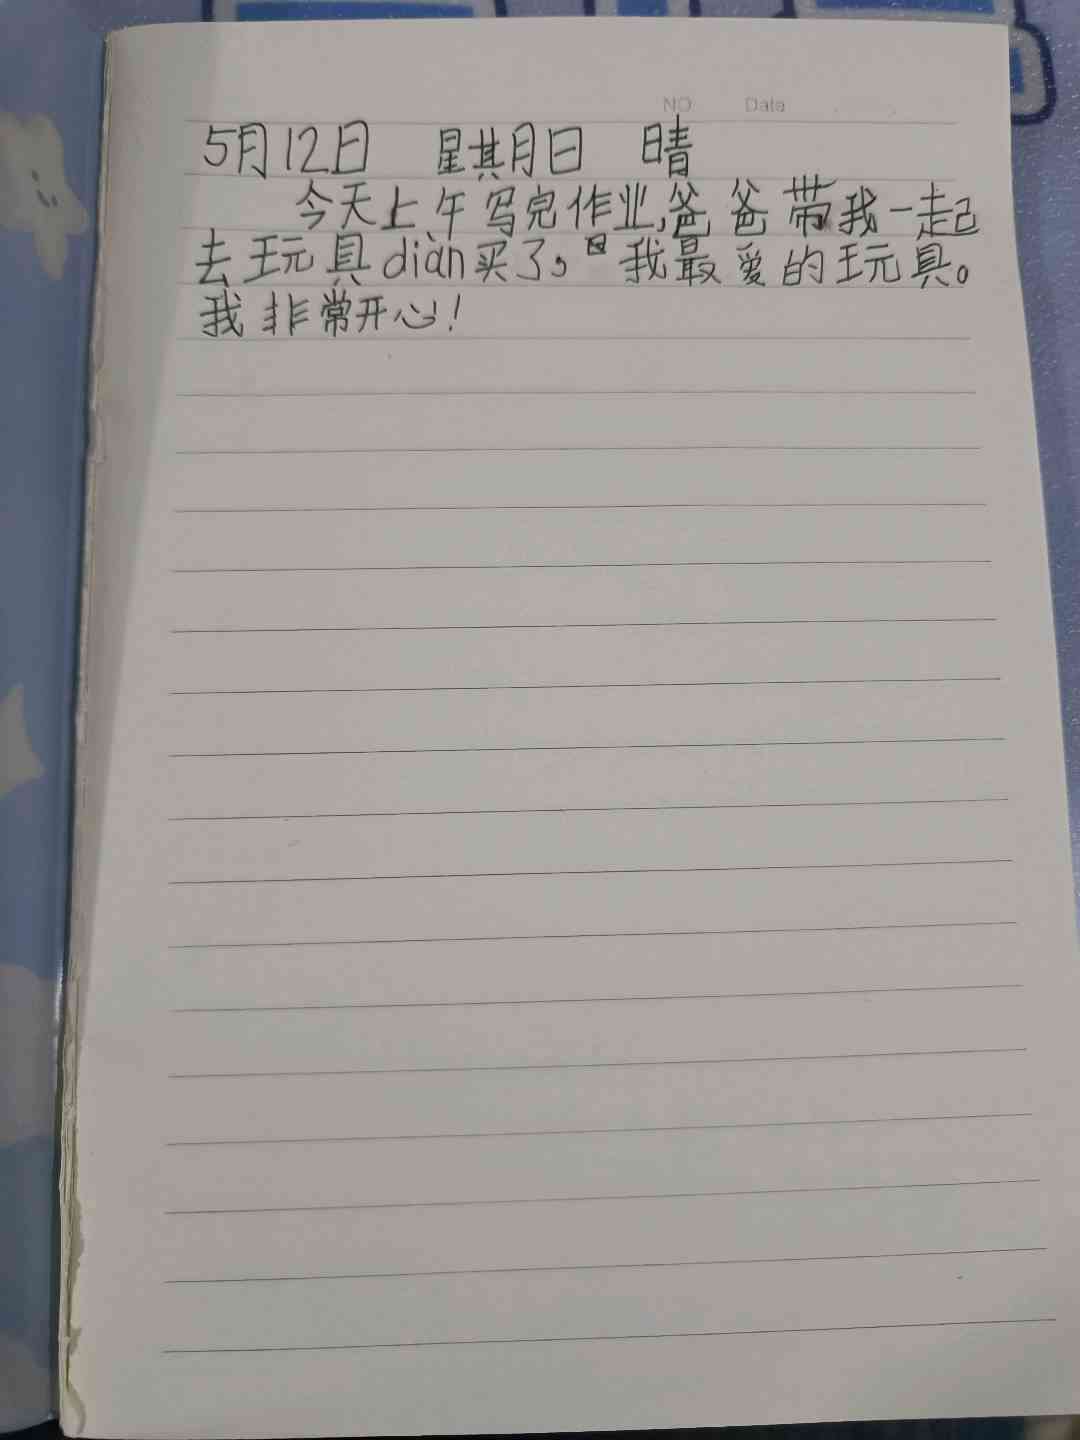 NO. Date
5月12日 星期日 晴
今天上午写完作业,爸爸带我一起
去玩具diàn买了,我最爱的玩具。
我非常开心!